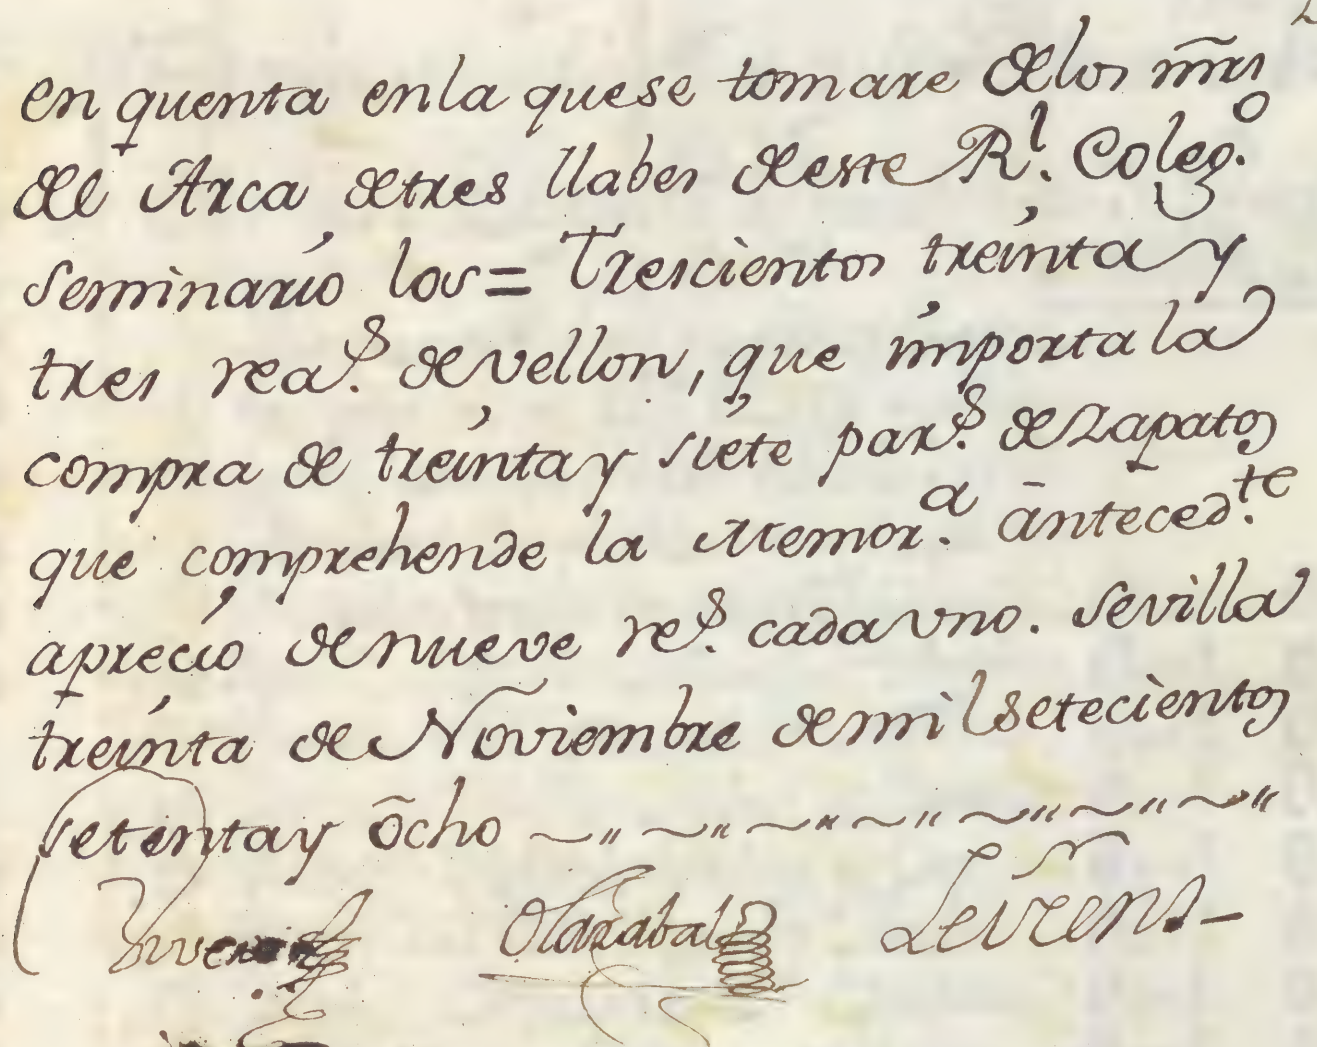 en quenta en la que se tomare de los mrs
del Arca de tres llabes de este Rl. Colego.
Seminario los = Trescientos treinta y
tres reas. de vellon, que importa la
compra de treinta y siete pars. de Zapatos
que comprehende la Memora. antecedte.
a precio de nueve rs. cada uno. Sevilla
treinta de Noviembre de mil setecientos
setenta y ocho
Olazabal